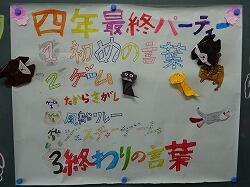 四年最終パーティー
1 初めの言葉
2 ゲーム
たからさがし
風船リレー
ジェスチャーゲーム
3.終わりの言葉